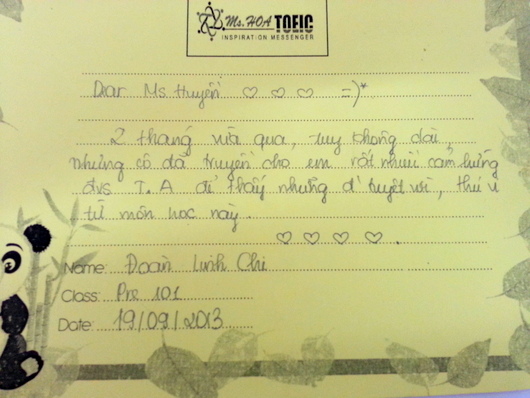 Ms. HOA TOEIC
INSPIRATION MESSENGER
Dear Ms. Huyền ♡ ♡ ♡ =)*
2 tháng vừa qua, tuy không dài
nhưng cô đã truyền cho em rất nhiều cảm hứng
đvs T.A để thấy những đ' tuyệt vời, thú vị
từ môn học này.
♡ ♡ ♡ ♡.
Name: Đoàn Linh Chi
Class: Pre 101
Date: 19/09/2013